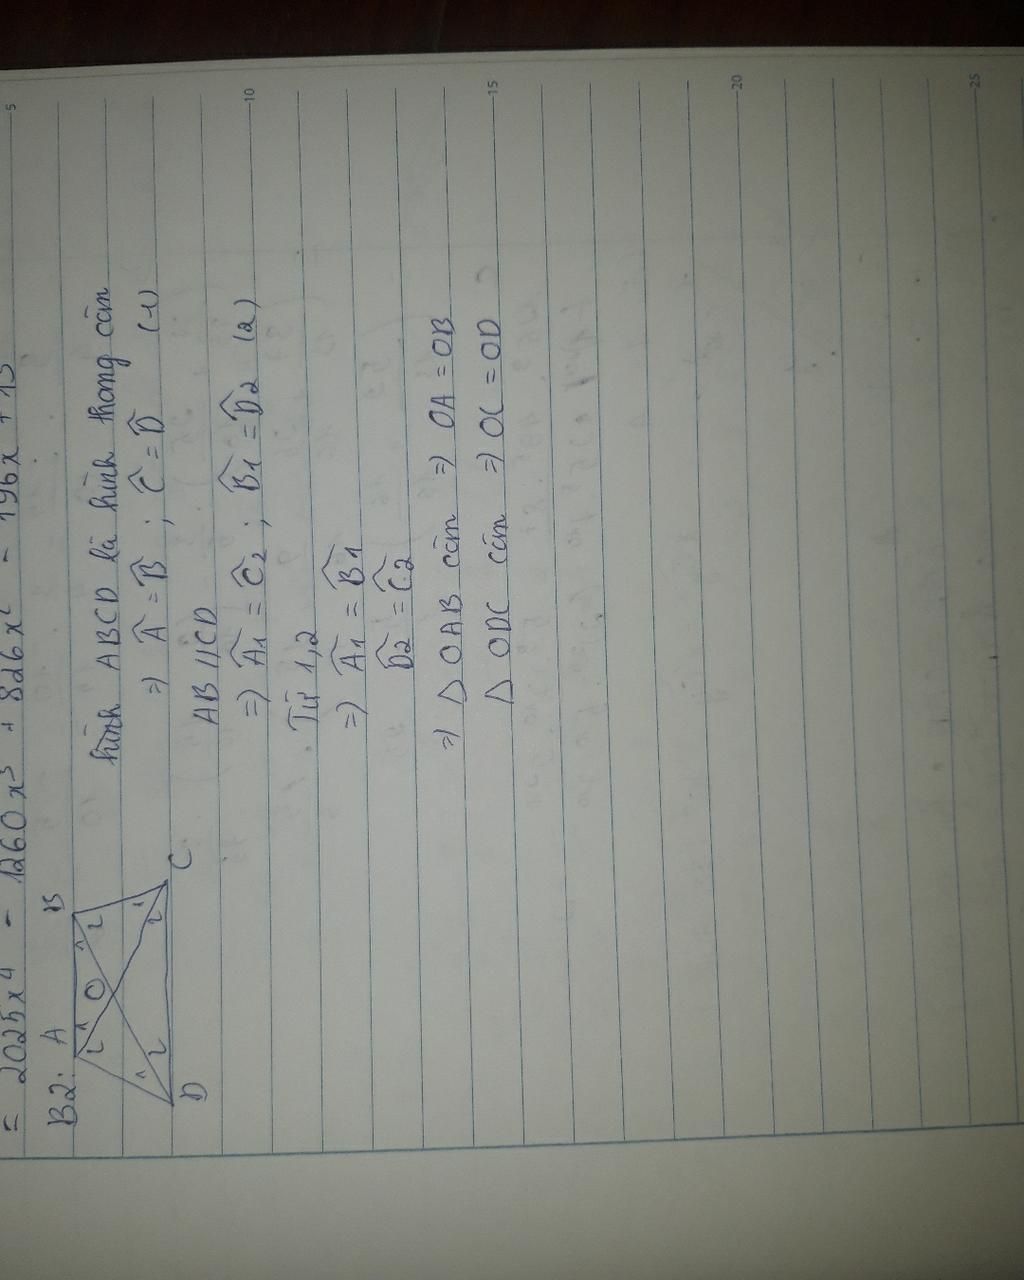 = 2025x⁴ - 1260x³ + 826x² - 196x + 13
B2:
A B
O
1 2 1 2
1 2 2 1
D C
hình ABCD là hình thang cân
=) Â = B̂ ; Ĉ = D̂ (1)
AB // CD
=) Â1 = Ĉ2 ; B̂1 = D̂2 (2)
Từ 1,2
=) Â1 = B̂1
D̂2 = Ĉ2
=) △ OAB cân =) OA = OB
△ ODC cân =) OC = OD
5
10
15
20
25